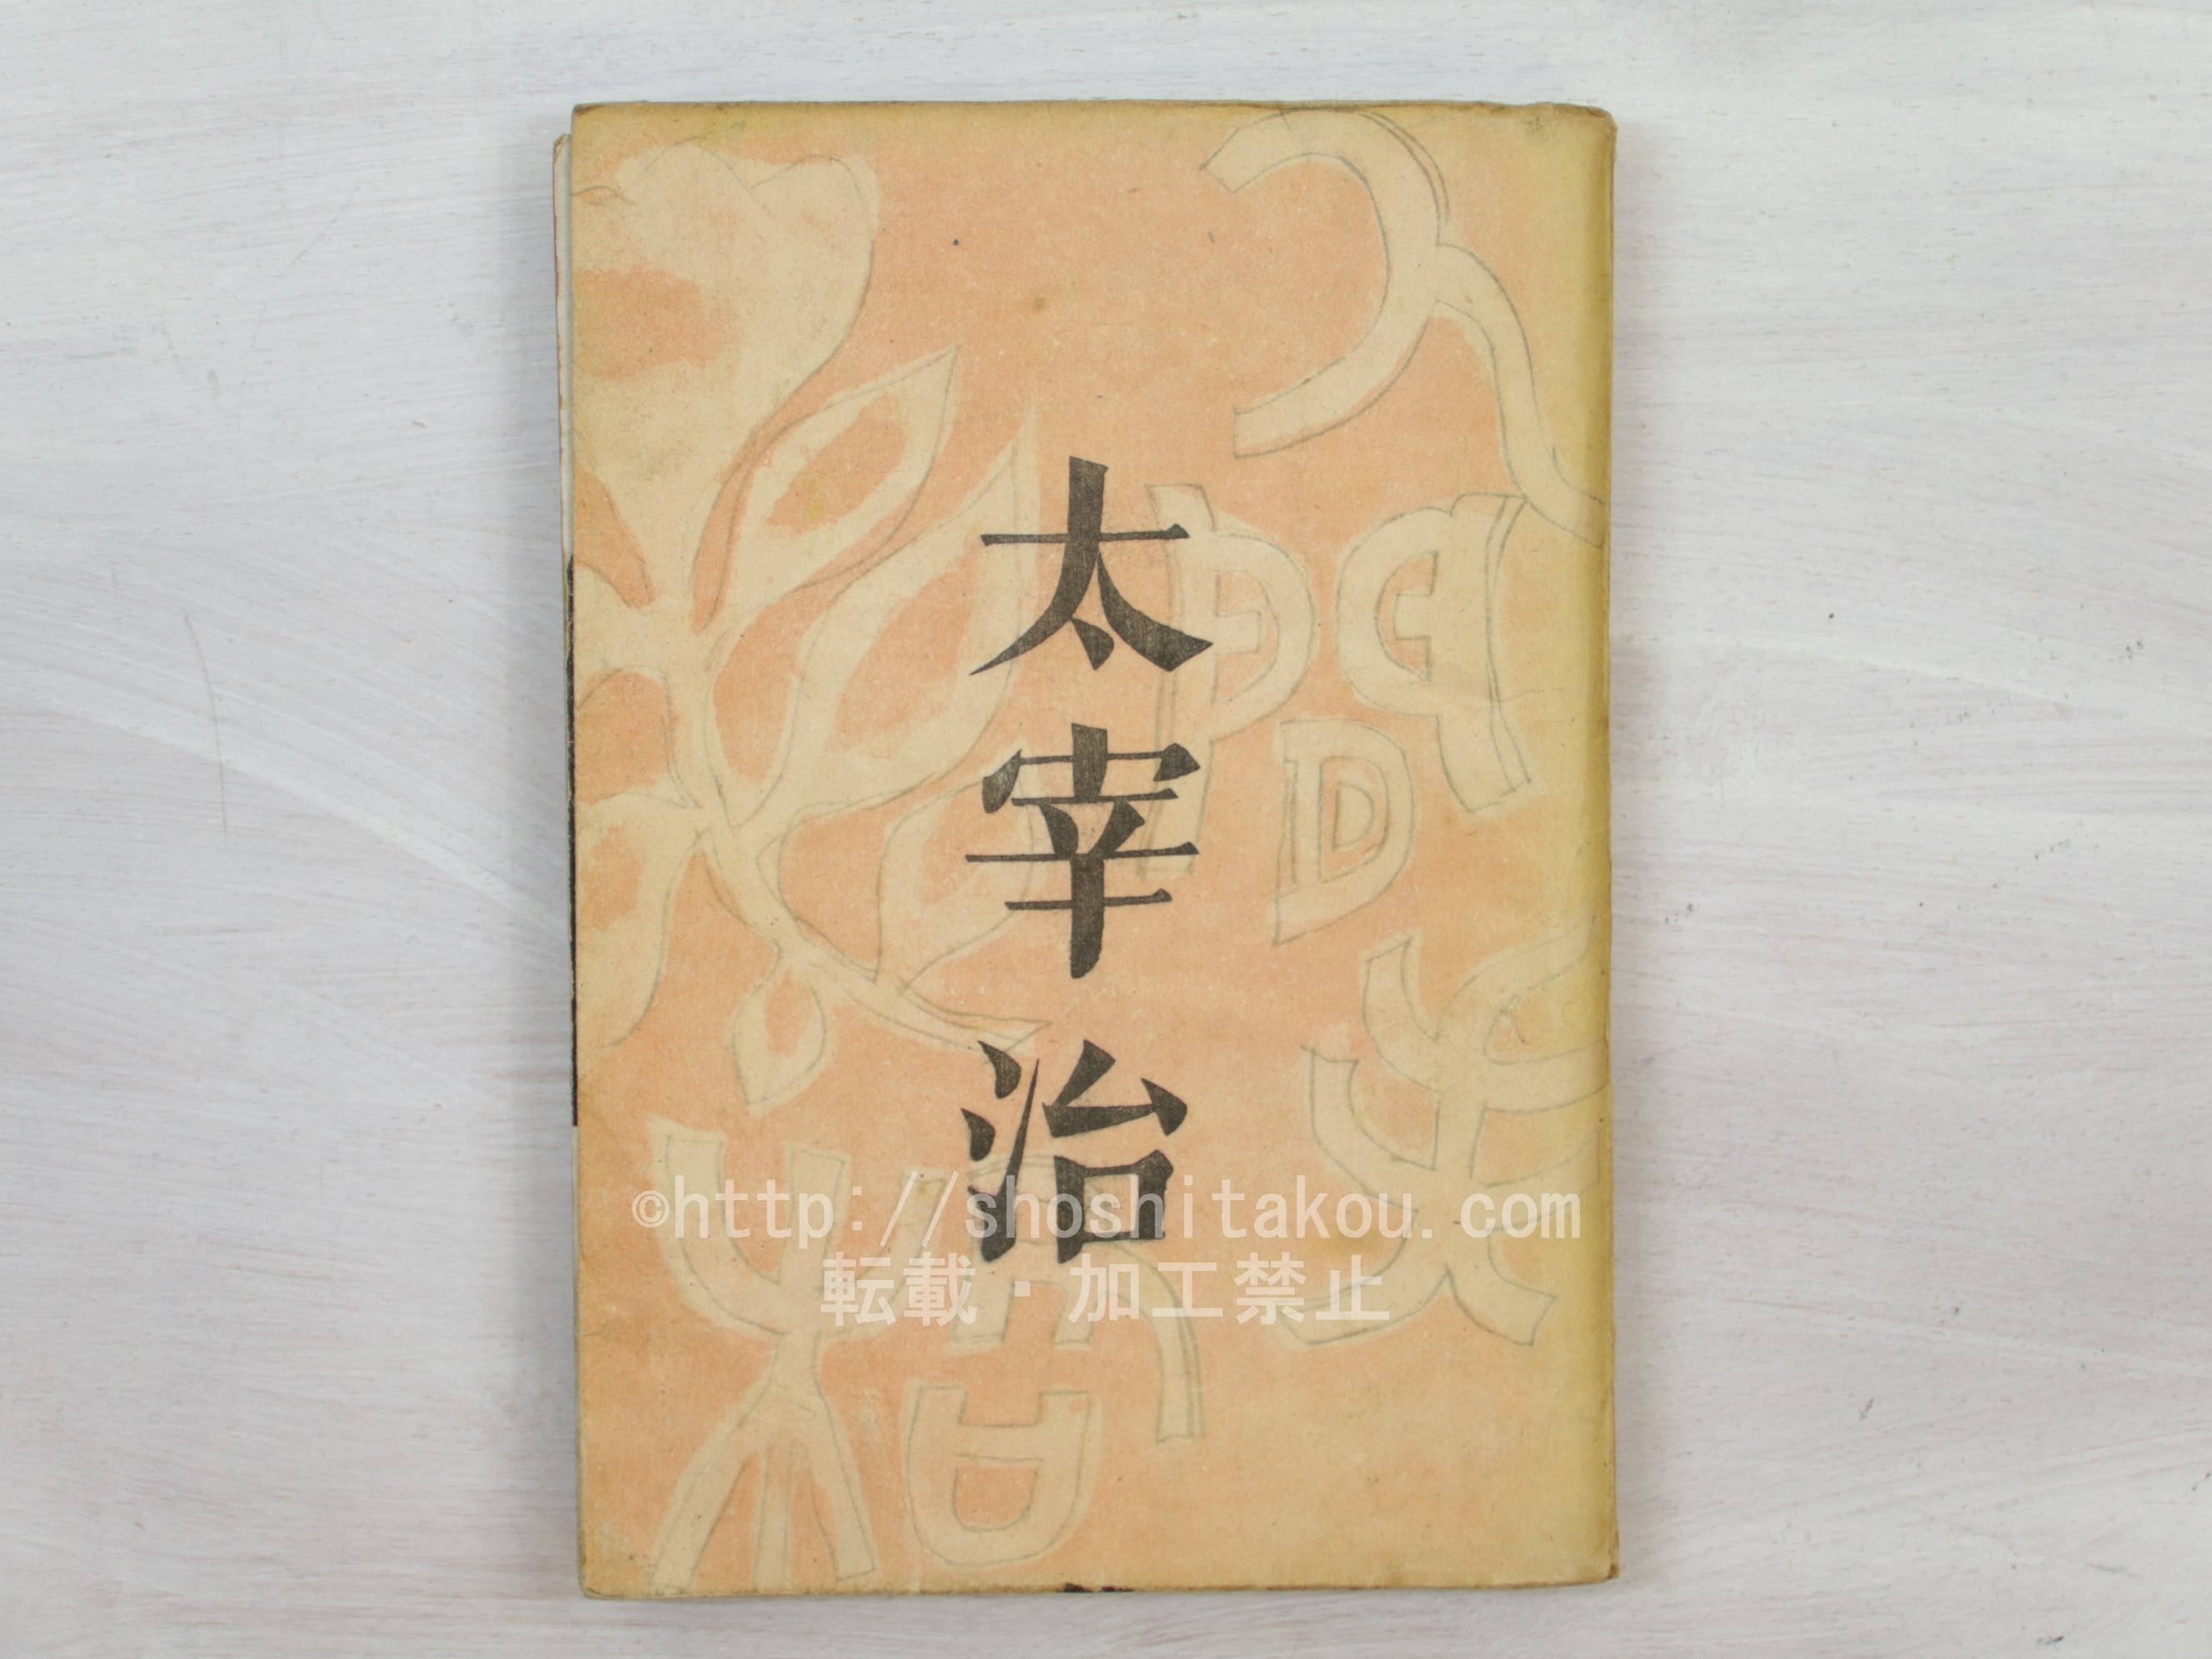 太宰治
人間失格
©http://shoshitakou.com
転載・加工禁止